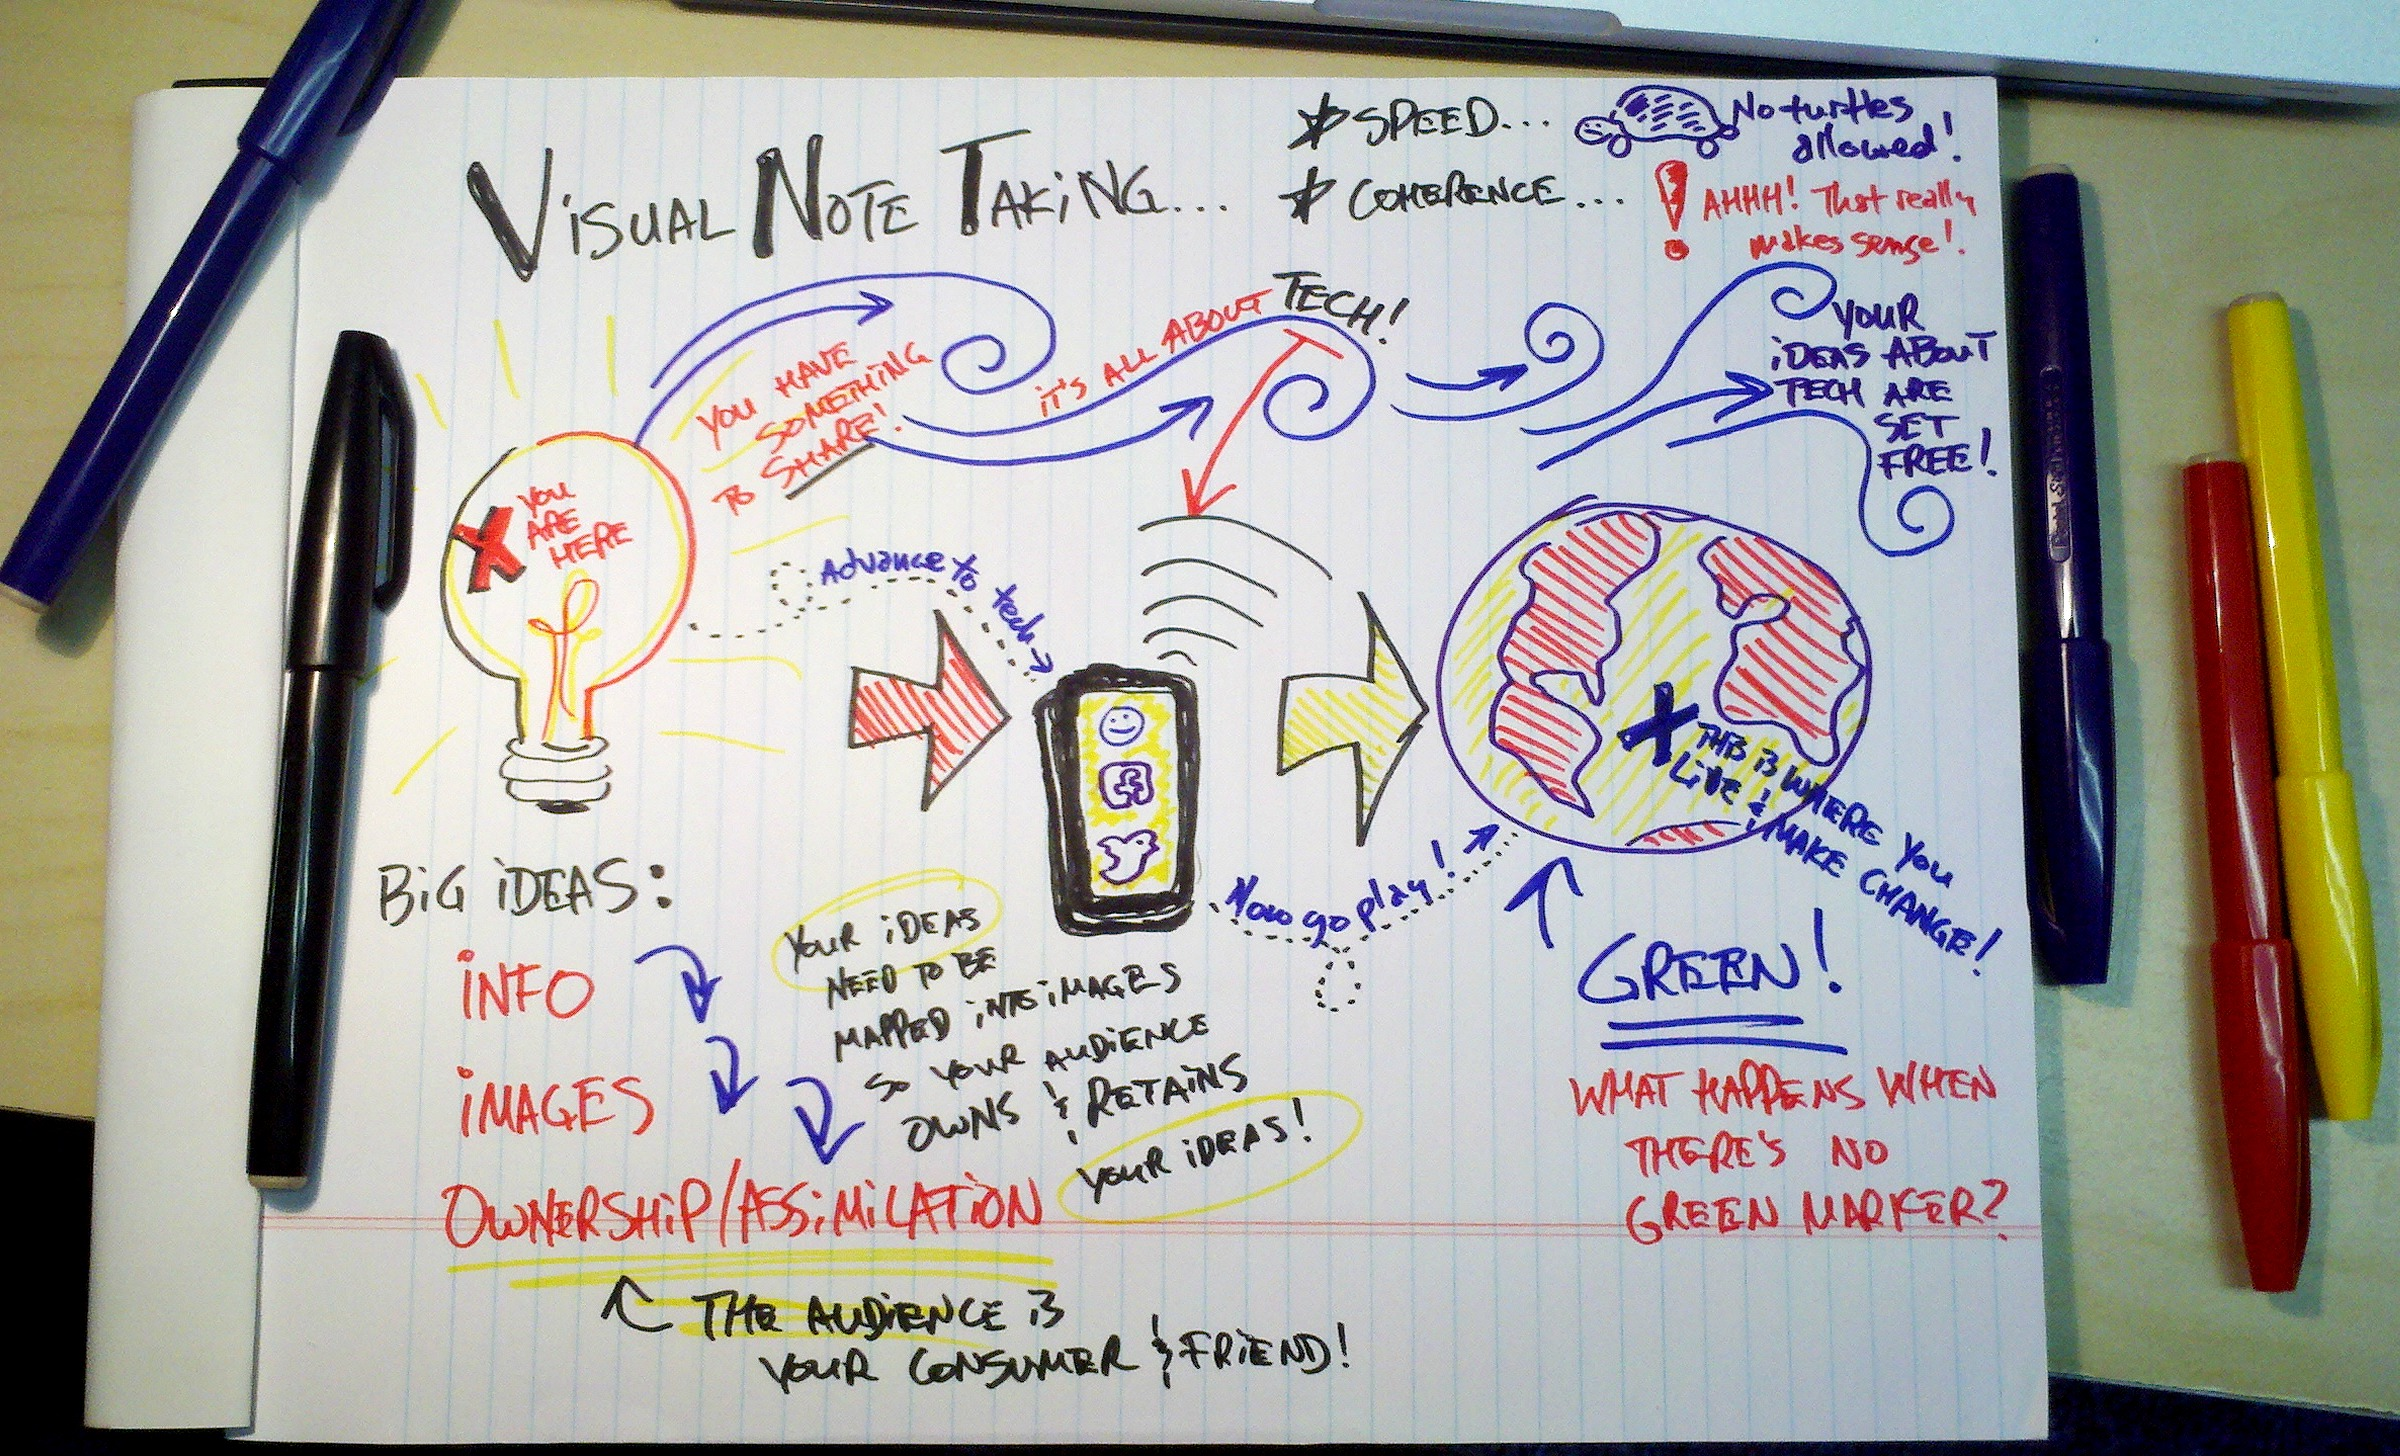 VISUAL NOTE TAKING...
* SPEED...
No turtles
allowed!
* COHERENCE...
! AHHH! That really
makes sense!
YOU HAVE
SOMETHING
TO SHARE!
IT'S ALL ABOUT TECH!
YOUR
IDEAS ABOUT
TECH ARE
SET
FREE!
X YOU
ARE
HERE
Advance to tech
X THIS IS WHERE YOU
LIVE & MAKE CHANGE!
Now go play!
BIG IDEAS:
INFO
IMAGES
OWNERSHIP/ASSIMILATION
YOUR IDEAS
NEED TO BE
MAPPED INTO IMAGES
SO YOUR AUDIENCE
OWNS & RETAINS
YOUR IDEAS!
THE AUDIENCE IS
YOUR CONSUMER & FRIEND!
GREEN!
WHAT HAPPENS WHEN
THERE'S NO
GREEN MARKER?